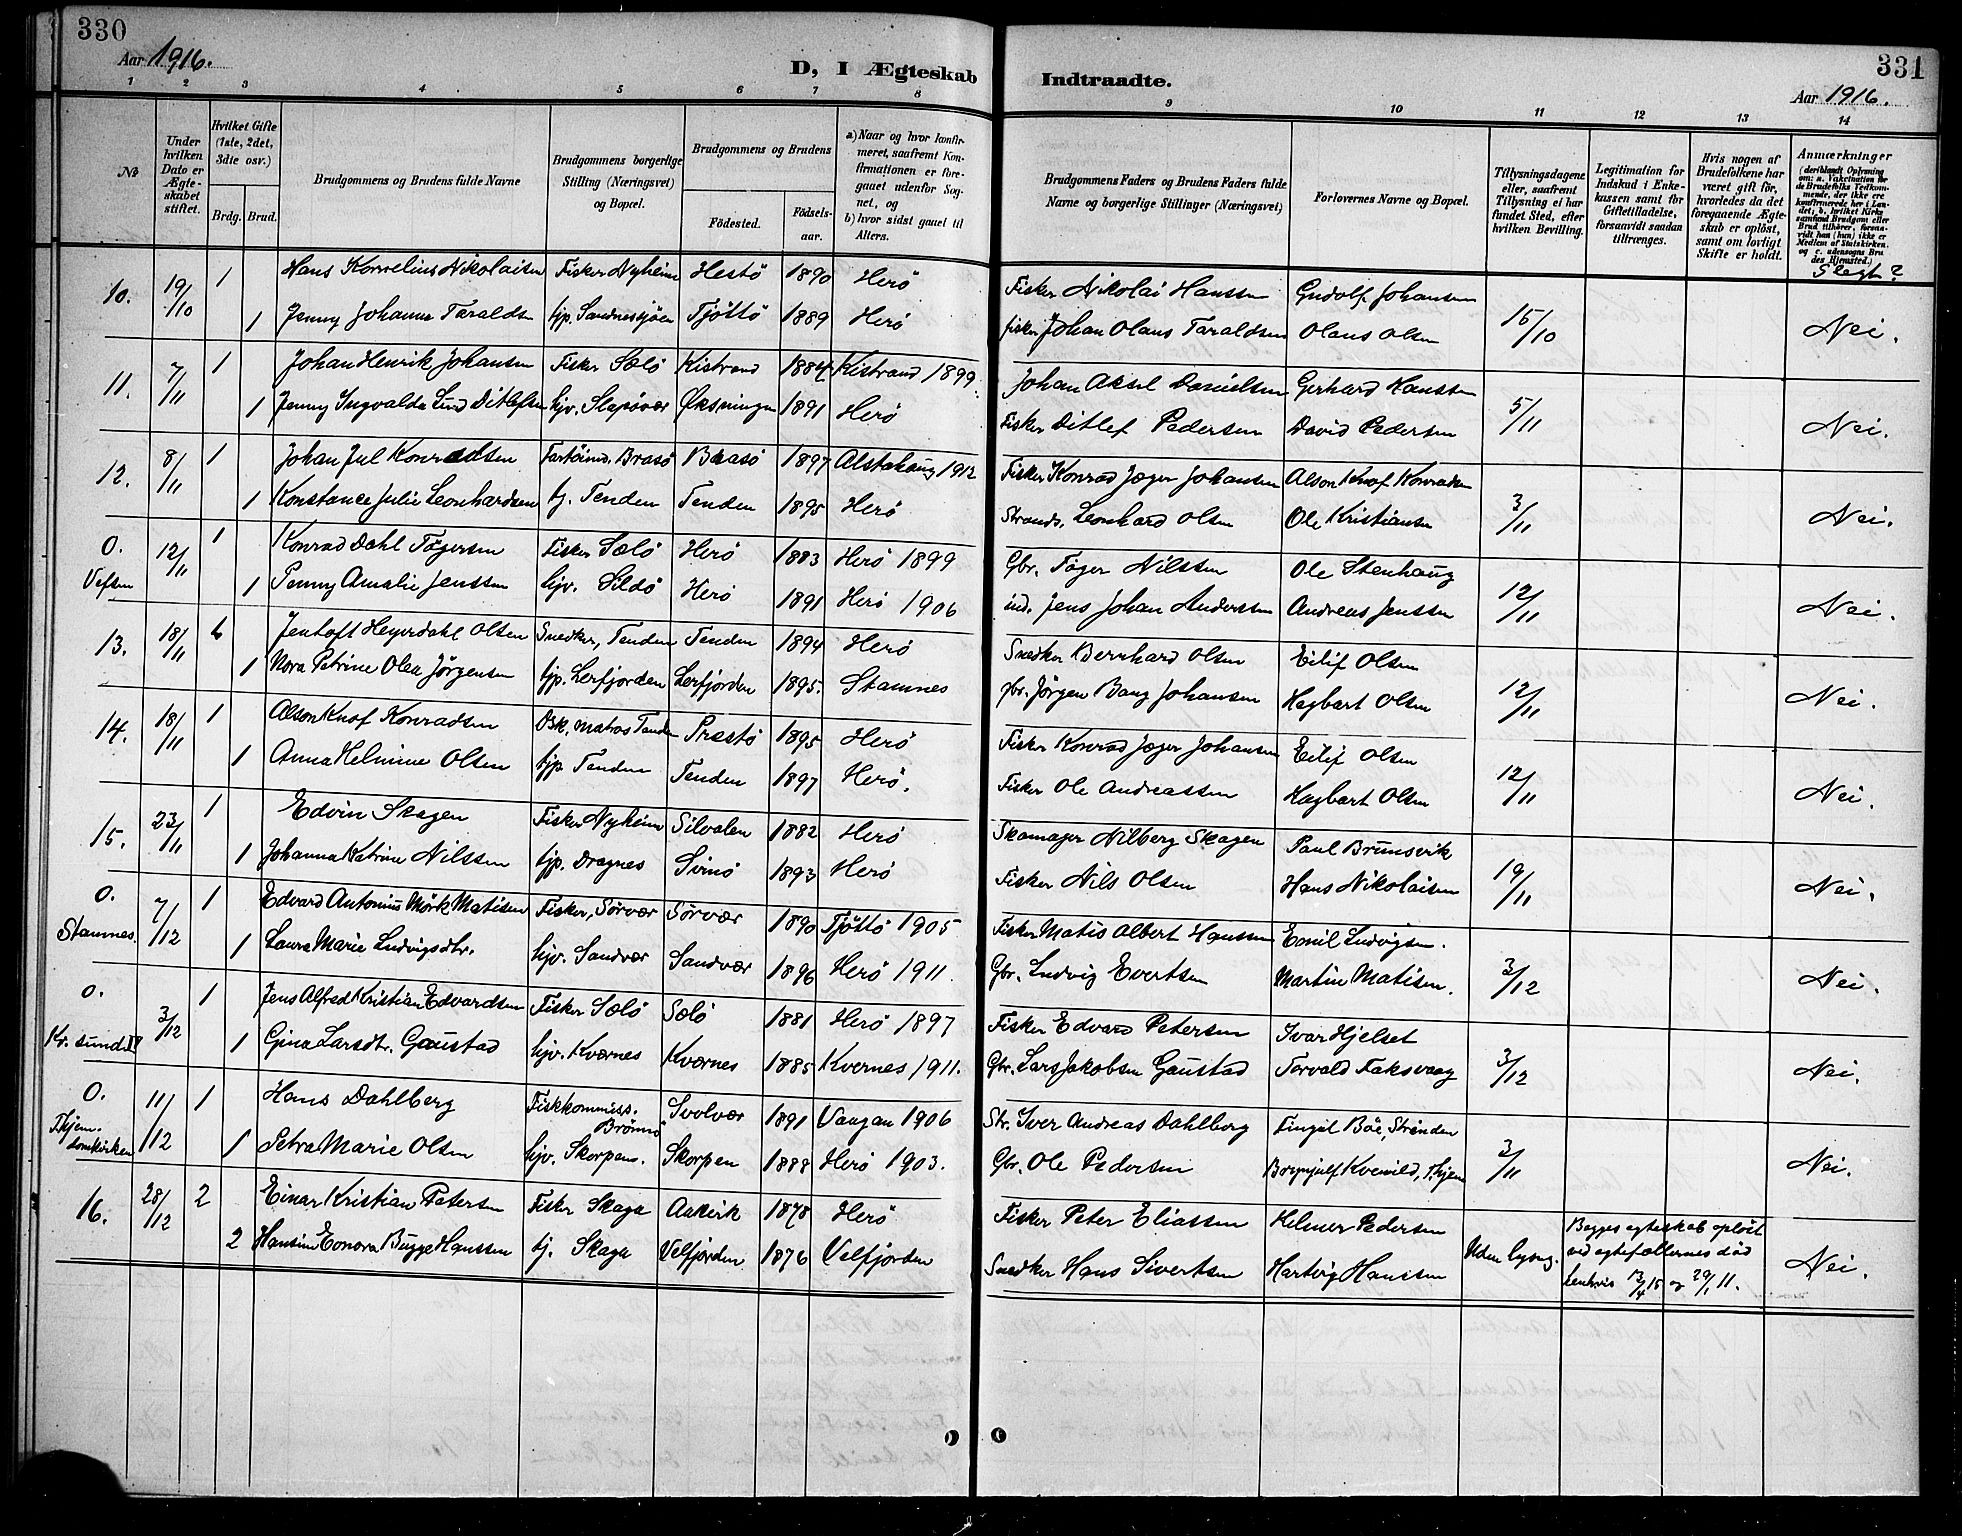 330
Aar 1916.
D, I Ægteskab
Indtraadte.
331
Aar 1916.
1 2 3 4 5 6 7 8 9 10 11 12 13 14
№
Under hvilken Dato er Ægteskabet stiftet.
Hvilket Gifte (1ste, 2det, 3die osv.)
Brdg. Brud.
Brudgommens og Brudens fulde Navne
Brudgommens borgerlige Stilling (Næringsvei) og Bopæl.
Brudgommens og Brudens
Fødested.
Fødselsaar.
a) Naar og hvor konfirmeret, saafremt Konfirmationen er foregaaet udenfor Sognet, og
b) hvor sidst gaaet til Alters.
Brudgommens Faders og Brudens Faders fulde Navne og borgerlige Stillinger (Næringsvei)
Forlovernes Navne og Bopæl.
Tillysningsdagene eller, saafremt Tillysning ei har fundet Sted, efter hvilken Bevilling.
Legitimation for Indskud i Enkekassen samt for Giftetilladelse, forsaavidt saadan tiltrænges.
Hvis nogen af Brudefolkene har været gift før, hvorledes da det foregaaende Ægteskab er opløst, samt om lovligt Skifte er holdt.
Anmærkninger
(deriblandt Oplysning om: a. Vakcination for de Brudefolks Vedkommende, der ikke ere konfirmerede her i Landet; b. hvilket Kirkesamfund Brudgom eller Brud tilhører, forsaavidt han (hun) ikke er Medlem af Statskirken, og c. udensogns Brudes Hjemsted.)
Slegt?
10. 19/10 1 Hans Kornelius Nikolaisen Fisker Nyheim Hestö 1890 Herö Fisker Nikolai Hanssen Gudolf Johansen 15/10 Nei.
1 Jenny Johanna Taraldsen tjp. Sandnessjöen Tjöttö 1889 Herö fisker Johan Olaus Taraldsen Olaus Olsen
11. 7/11 1 Johan Henrik Johansen Fisker Sælö Kistrand 1884 Kistrand 1899 Johan Aksel Danielsen Gerhard Hanssen 5/11 Nei.
1 Jenny Ingvalda Lund Ditlefsen hjv. Slapövær Øksningen 1891 Herö Fisker Ditlef Pedersen David Pedersen
12. 8/11 1 Johan Jul Konradsen Brasö Brasö 1897 Alstahaug 1912 Fisker Konrad Jæger Johansen Alson Knof Konradsen 3/11 Nei.
1 Konstance Julie Leonhardsen tj. Tenden Tenden 1895 Herö Strands. Leonhard Olsen Ole Kristiansen
0. Vefsen 12/11 1 Konrad Dahl Tøgersen Fisker Sælö Herö 1883 Herö 1899 Gbr. Tøger Nilssen Ole Stenhaug 12/11 Nei.
1 Penny Amalie Jenssen hjv. Sildö Herö 1891 Herö 1906 ind. Jens Johan Anderssen Andreas Jenssen
13. 18/11 Jentoft Heyerdahl Olsen Snedker, Tenden Tenden 1894 Herö Snedker Bernhard Olsen Eilif Olsen 12/11 Nei.
1 Nora Petrine Olea Jörgensen tjp. Lerfjorden Lerfjorden 1895. Stamnes gbr. Jørgen Bang Johansen Hagbart Olsen
14. 18/11 1 Alson Knof Konradsen matros Tenden Prestö 1895 Herö Fisker Konrad Jæger Johansen Eilif Olsen 12/11 Nei.
1 Anna Helmine Olsen tjp Tenden Tenden 1897 Herö. Fisker Ole Andreassen Hagbart Olsen
15. 23/11 1 Edvin Skagen Fisker Nyheim Silvalen 1882 Herö Skomager Nilberg Skagen Paul Brunsvik 19/11 Nei.
1 Johanna Katrine Nilssen tjp. Dragnes Svinö 1893 Herö Fisker Nils Olsen Hans Nikolaisen
0. Stamnes. 7/12 1 Edvard Antonius Mörk Matisen Fisker, Sörvær Sörvær 1890 Tjöttö 1905 Fisker Matis Albert Hanssen Emil Ludvigsen. 3/12 Nei.
1 Laura Marie Ludvigsdtr. hjv. Sandvær Sandvær 1896 Herö 1911. Gbr. Ludvig Evertsen Martin Matisen.
0. Kr. sund. 3/12 1 Jens Alfred Kristian Edvardsen Fisker Sælö Sælö 1881 Herö 1897 Fisker Edvard Petersen Ivar Hjelset 3/12 Nei.
1 Gina Larsdtr. Gaustad hjv. Kværnes Kværnes 1885 Kvernes 1911. Gbr. Lars Jakobsen Gaustad Torvald Faksvaag
0. Thjem. domkirken 11/12 1 Hans Dahlberg Fiskkommiss. Brönnö Svolvær 1891 Vaagan 1906 Str. Iver Andreas Dahlberg Fingal Böe, Strinden 3/11 Nei.
1 Petra Marie Olsen hjv. Skorpen. Skorpen 1888 Herö 1903. Gbr. Ole Pedersen Kvenild, Thjem
16. 28/12 2 Einar Kristian Petersen Fisker Skaga Aakvik 1878 Herö Fisker Peter Eliassen Helmer Pedersen Uden lysng. Begges egteskab oplöst ved egtefællernes död henhvis 13/4 15 og 29/1 11. Nei.
2 Hansine Eonora Bugge Hanssen tj. Skaga Velfjorden 1876 Velfjorden Snedker Hans Sivertsen Hartvig Hanssen